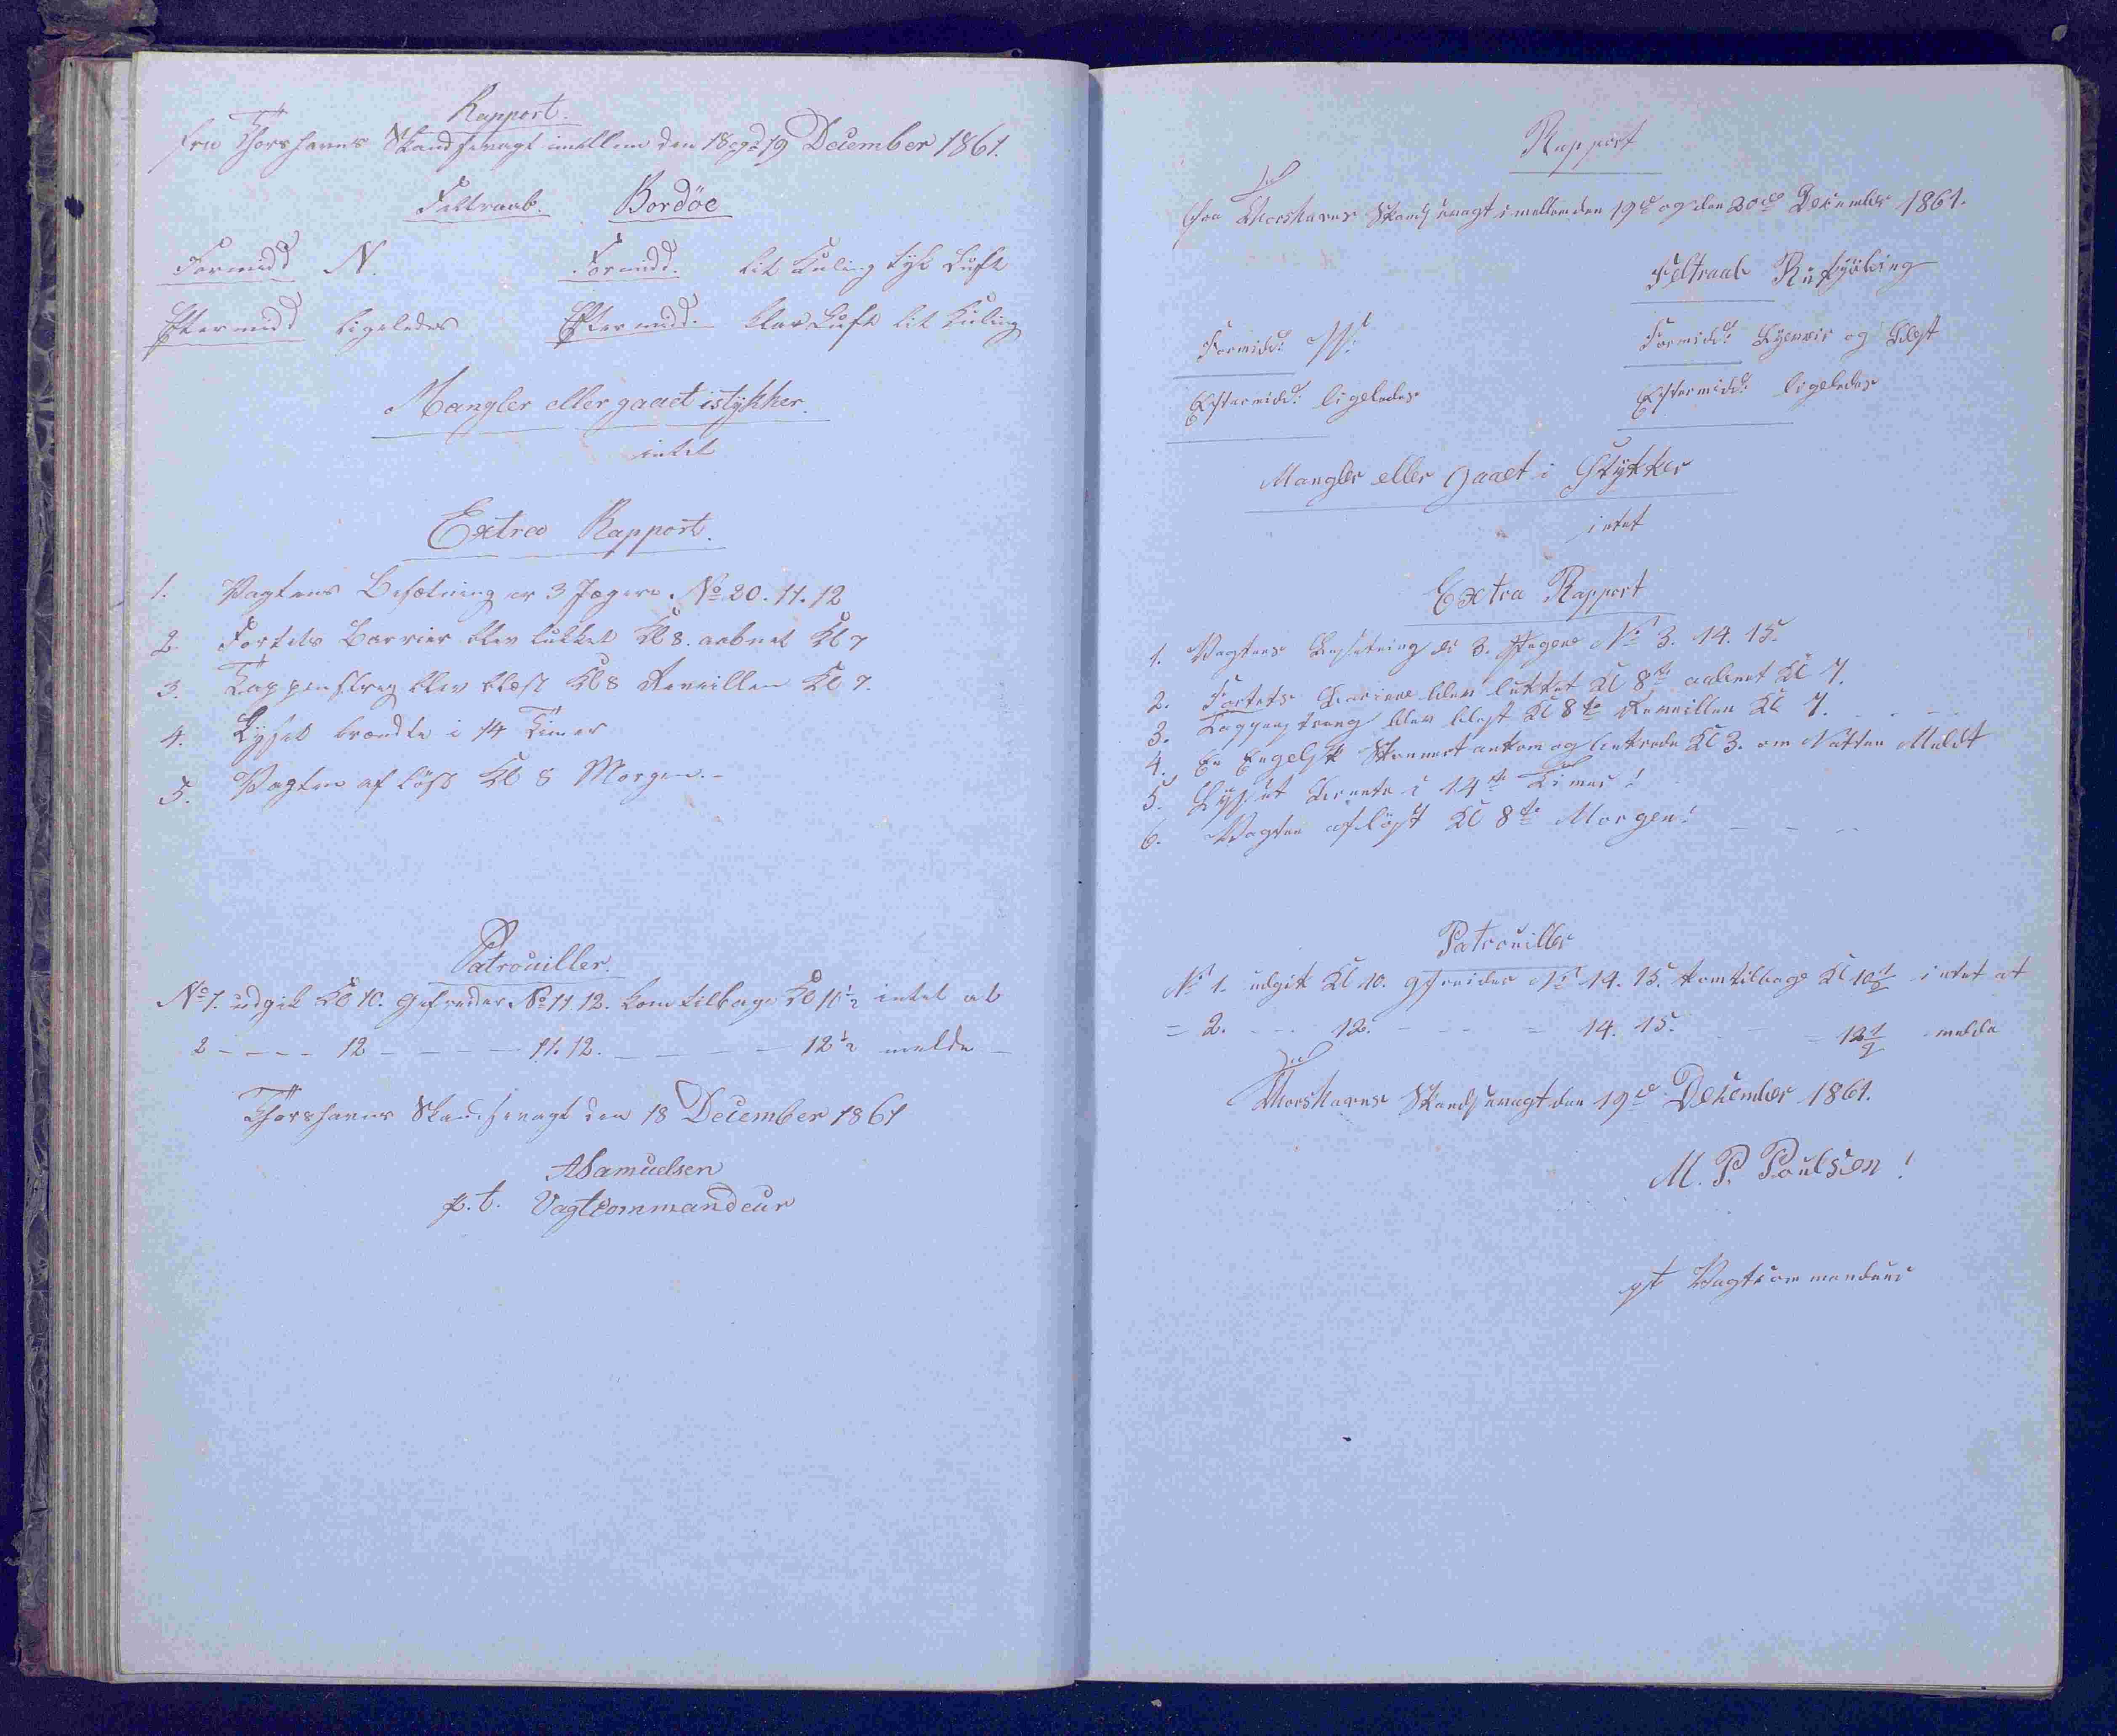 Rapport.
fra Thorshavns Skandsevagt imellem den 18 og 19 December 1861.
Feltraab. Bordöe
Formidd N. Formidd. lit Kuling tyk Luft
Eftermidd ligeledes Eftermidd. klar Luft lit Kuling
Mangler eller gaaet istykker.
intet
Extra Rapport.
1. Vagtens Besætning er 3 Jægere. No 20. 11. 12
2. Fortets Barrier blev lukket Kl 8. aabnet Kl 7
3. Tappenstreg blev blæst Kl 8 Reveillen Kl 7.
4. Lyset brændte i 14 Timer
5. Vagten aflöst Kl 8 Morgen.-
Patrouiller.
No 1. udgik Kl 10. Gefreder No 11 12. kom tilbage Kl 10½ intet at
2 - - - - 12 - - - - - 11. 12. - - - - - 12½ melde -
Thorshavns Skandsevagt den 18 December 1861
ASamuelsen
p.t. Vagtcommandeur
Rapport
fra Thorshavns Skandsevagt imellem den 19d og den 20de December 1861.
Feltraab
Formidd: Formidd: og Blæst
Eftermidd: ligeledes Eftermidd: ligeledes
Mangler eller gaaet i Stykker
intet
Extra Rapport
1. Vagtens Besetning er 3. Jegere No 3. 14. 15.
2. Fortets Bariere blev lukket Kl 8te aabnet Kl 7.
3. Tappenstreng blev blest Kl 8te Reveillen Kl 7. - - -
4. En Engelsk Skonnert ankom og Kl 3. om Natten Meldt
5. Lyset brente i 14te Timer!
6. Vagten aflöst Kl 8te Morgen! - - -
Patrouiller
No 1. udgik Kl 10. Gfreider No 14. 15. kom tilbage Kl 10½ intet at
= 2. - - - 12. - - - = 14. 15. - = 12½ melde
Thorshavns Skandsevagt den 19d December 1861.
M. P. Poulsen!
pt Vagtcommandeur